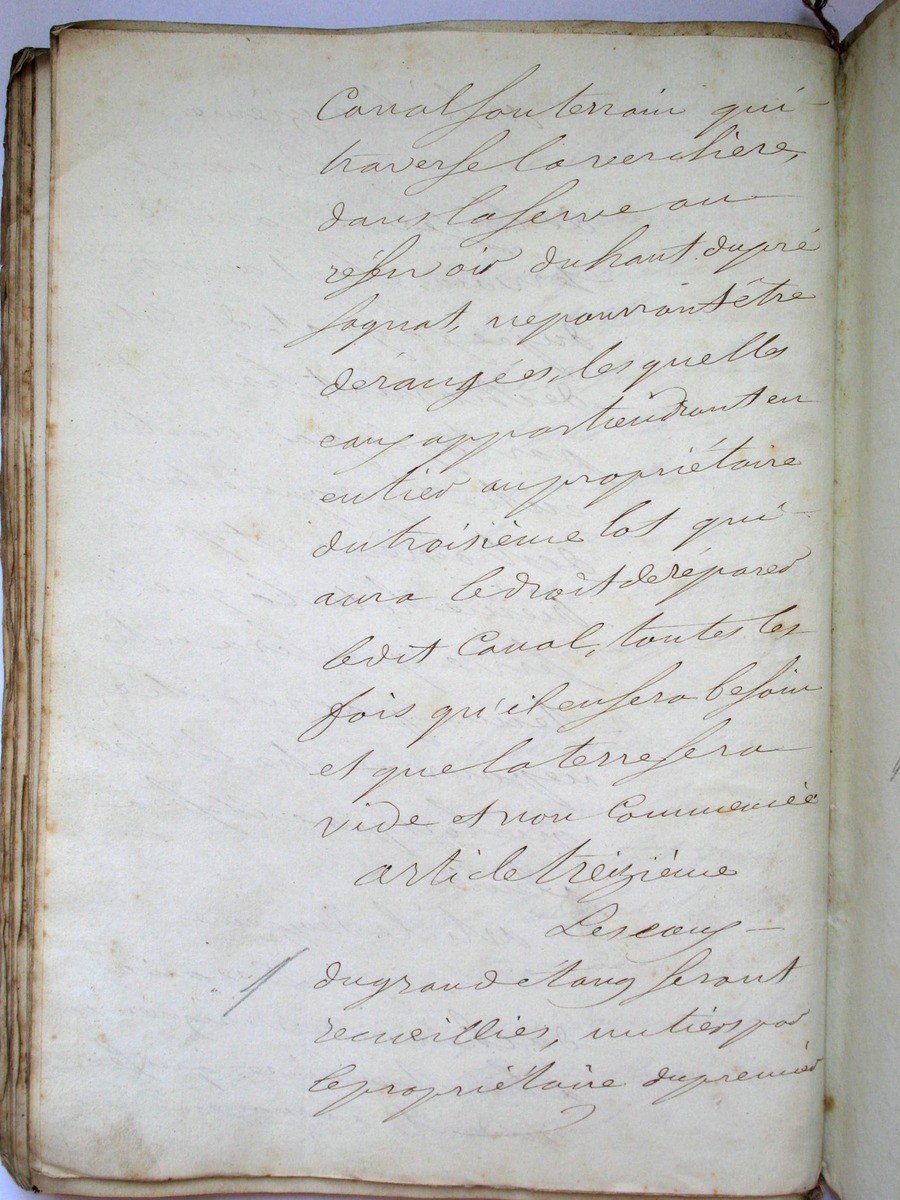 Canal souterrain qui
traverse la verchere,
dans la serve ou
réservoir du haut du pré
sagnat, ne pourront être
dérangées, lesquelles
eaux appartiendront en
entier au propriétaire
du troisième lot qui
aura le droit de réparer
ledit Canal, toutes les
fois qu'il en sera besoin
et que la terre sera
vide et non
article treizième
Les eaux
du grand étang seront
recueillies, un tiers par
le propriétaire du premier